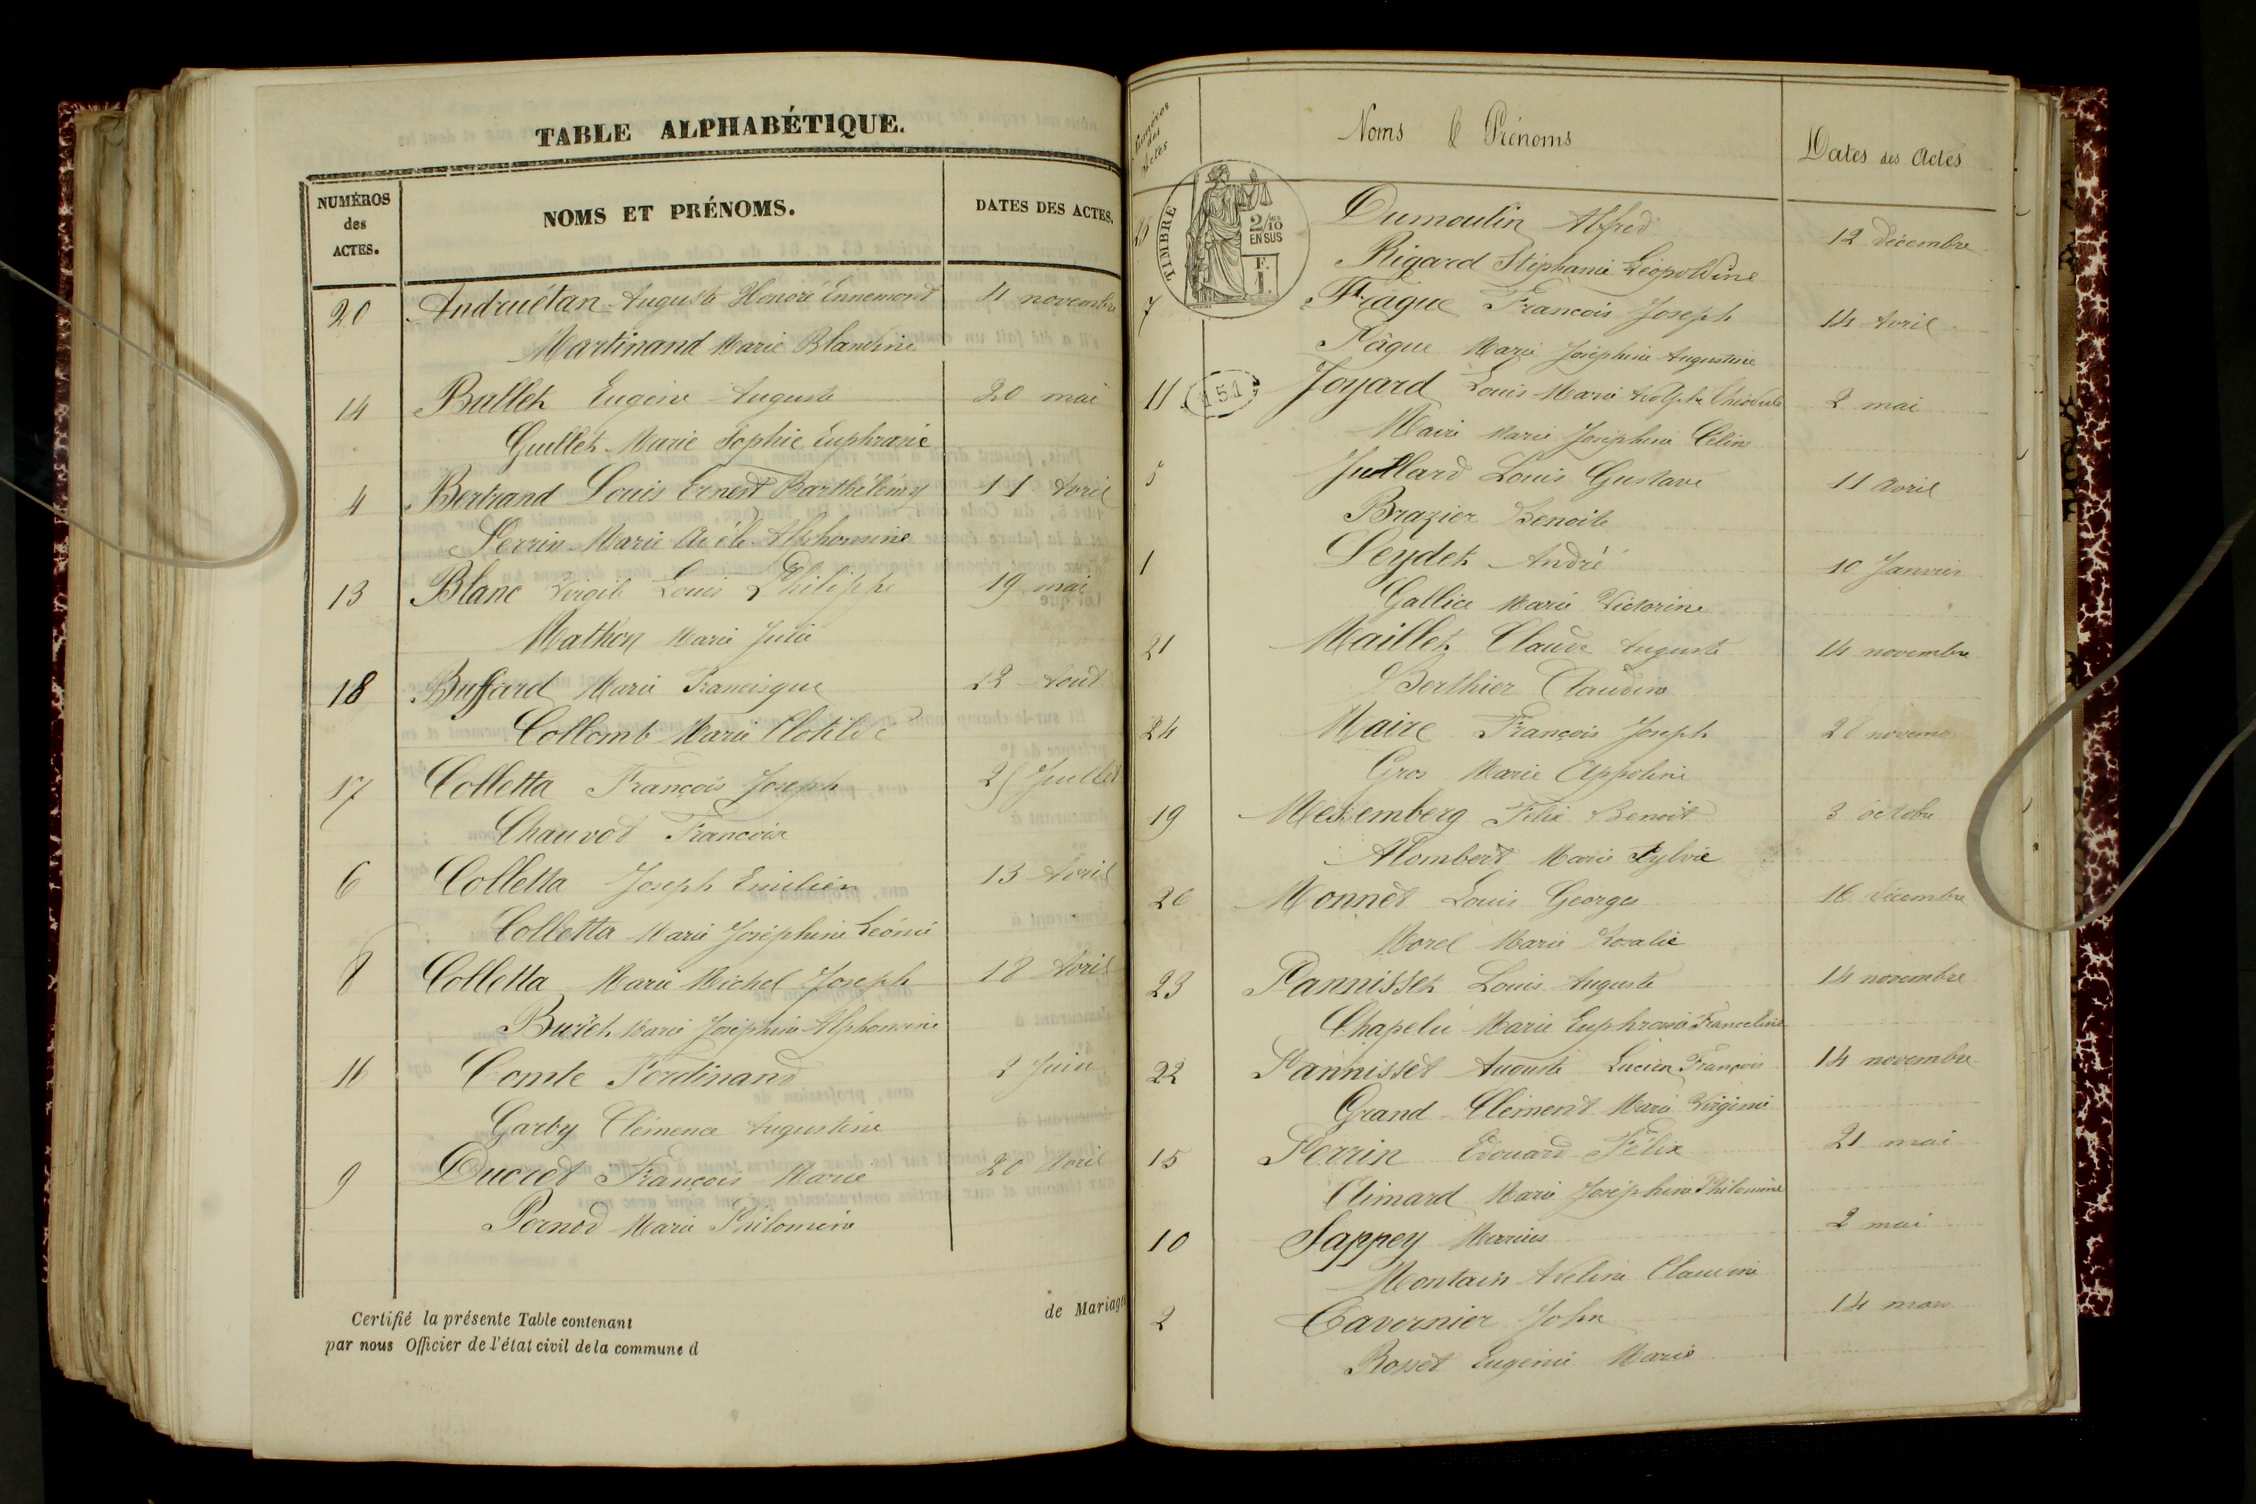 TABLE ALPHABÉTIQUE.
NUMÉROS des ACTES.
NOMS ET PRÉNOMS.
DATES DES ACTES.
20 Andruétan Auguste Honoré Ennemond 4 novembre
Martinand Marie Blandine
14 Ballet Eugène Auguste 20 mai
Guillet Marie Sophie Euphrasie
4 Bertrand Louis Ernest Barthélémy 11 Avril
Perrin Marie Adèle Alphonsine
13 Blanc Virgile Louis Philippe 19 mai
Mathon Marie Julie
18 Buffard Marie Francisque 12 Aout
Collomb Marie Clotilde
17 Colletta François Joseph 25 Juillet
Chauvot Françoise
6 Colletta Joseph Emilien 13 Avril
Colletta Marie Joséphine Léonie
8 Colletta Marie Michel Joseph 18 Avril
Marie Joséphine Alphonsine
16 Comte Ferdinand 2 Juin
Garby Clémence Augustine
9 Ducret François Marie 20 Avril
Pernod Marie Philomène
Certifié la présente Table contenant de Mariage
par nous Officier de l'état civil de la commune d
Numéros des Actes
Noms & Prénoms
Dates des Actes
TIMBRE
2/10
EN SUS
F.
1.
151
25 Dumoulin Alfred 12 décembre
Rigard Stéphanie Léopoldine
7 François Joseph 14 Avril
Fâque Marie Joséphine Augustine
11 Joyard Louis Marie Adolphe 2 mai
Maire Marie Joséphine Céline
5 Juillard Louis Gustave 11 Avril
Brazier Benoite
1 Leydet André 10 Janvier
Gallice Marie Victorine
21 Maillet Claude Auguste 14 novembre
Berthier Claudine
24 Maire François Joseph 28
Gros Marie Appoline
19 Messemberg Félix Benoit 3 octobre
Alombert Marie Sylvie
26 Monnet Louis Georges 16 décembre
Morel Marie Rosalie
23 Pannisset Louis Auguste 14 novembre
Chapelu Marie Euphrosie Franceline
22 Pannisset Auguste Lucien François 14 novembre
Grand Clément Marie Virginie
15 Perrin Edouard Félix 21 mai
Climard Marie Joséphine Philomène
10 Sappey Marius 2 mai
Montain Claudine
2 Tavernier John 14 mars
Rosset Eugénie Marie